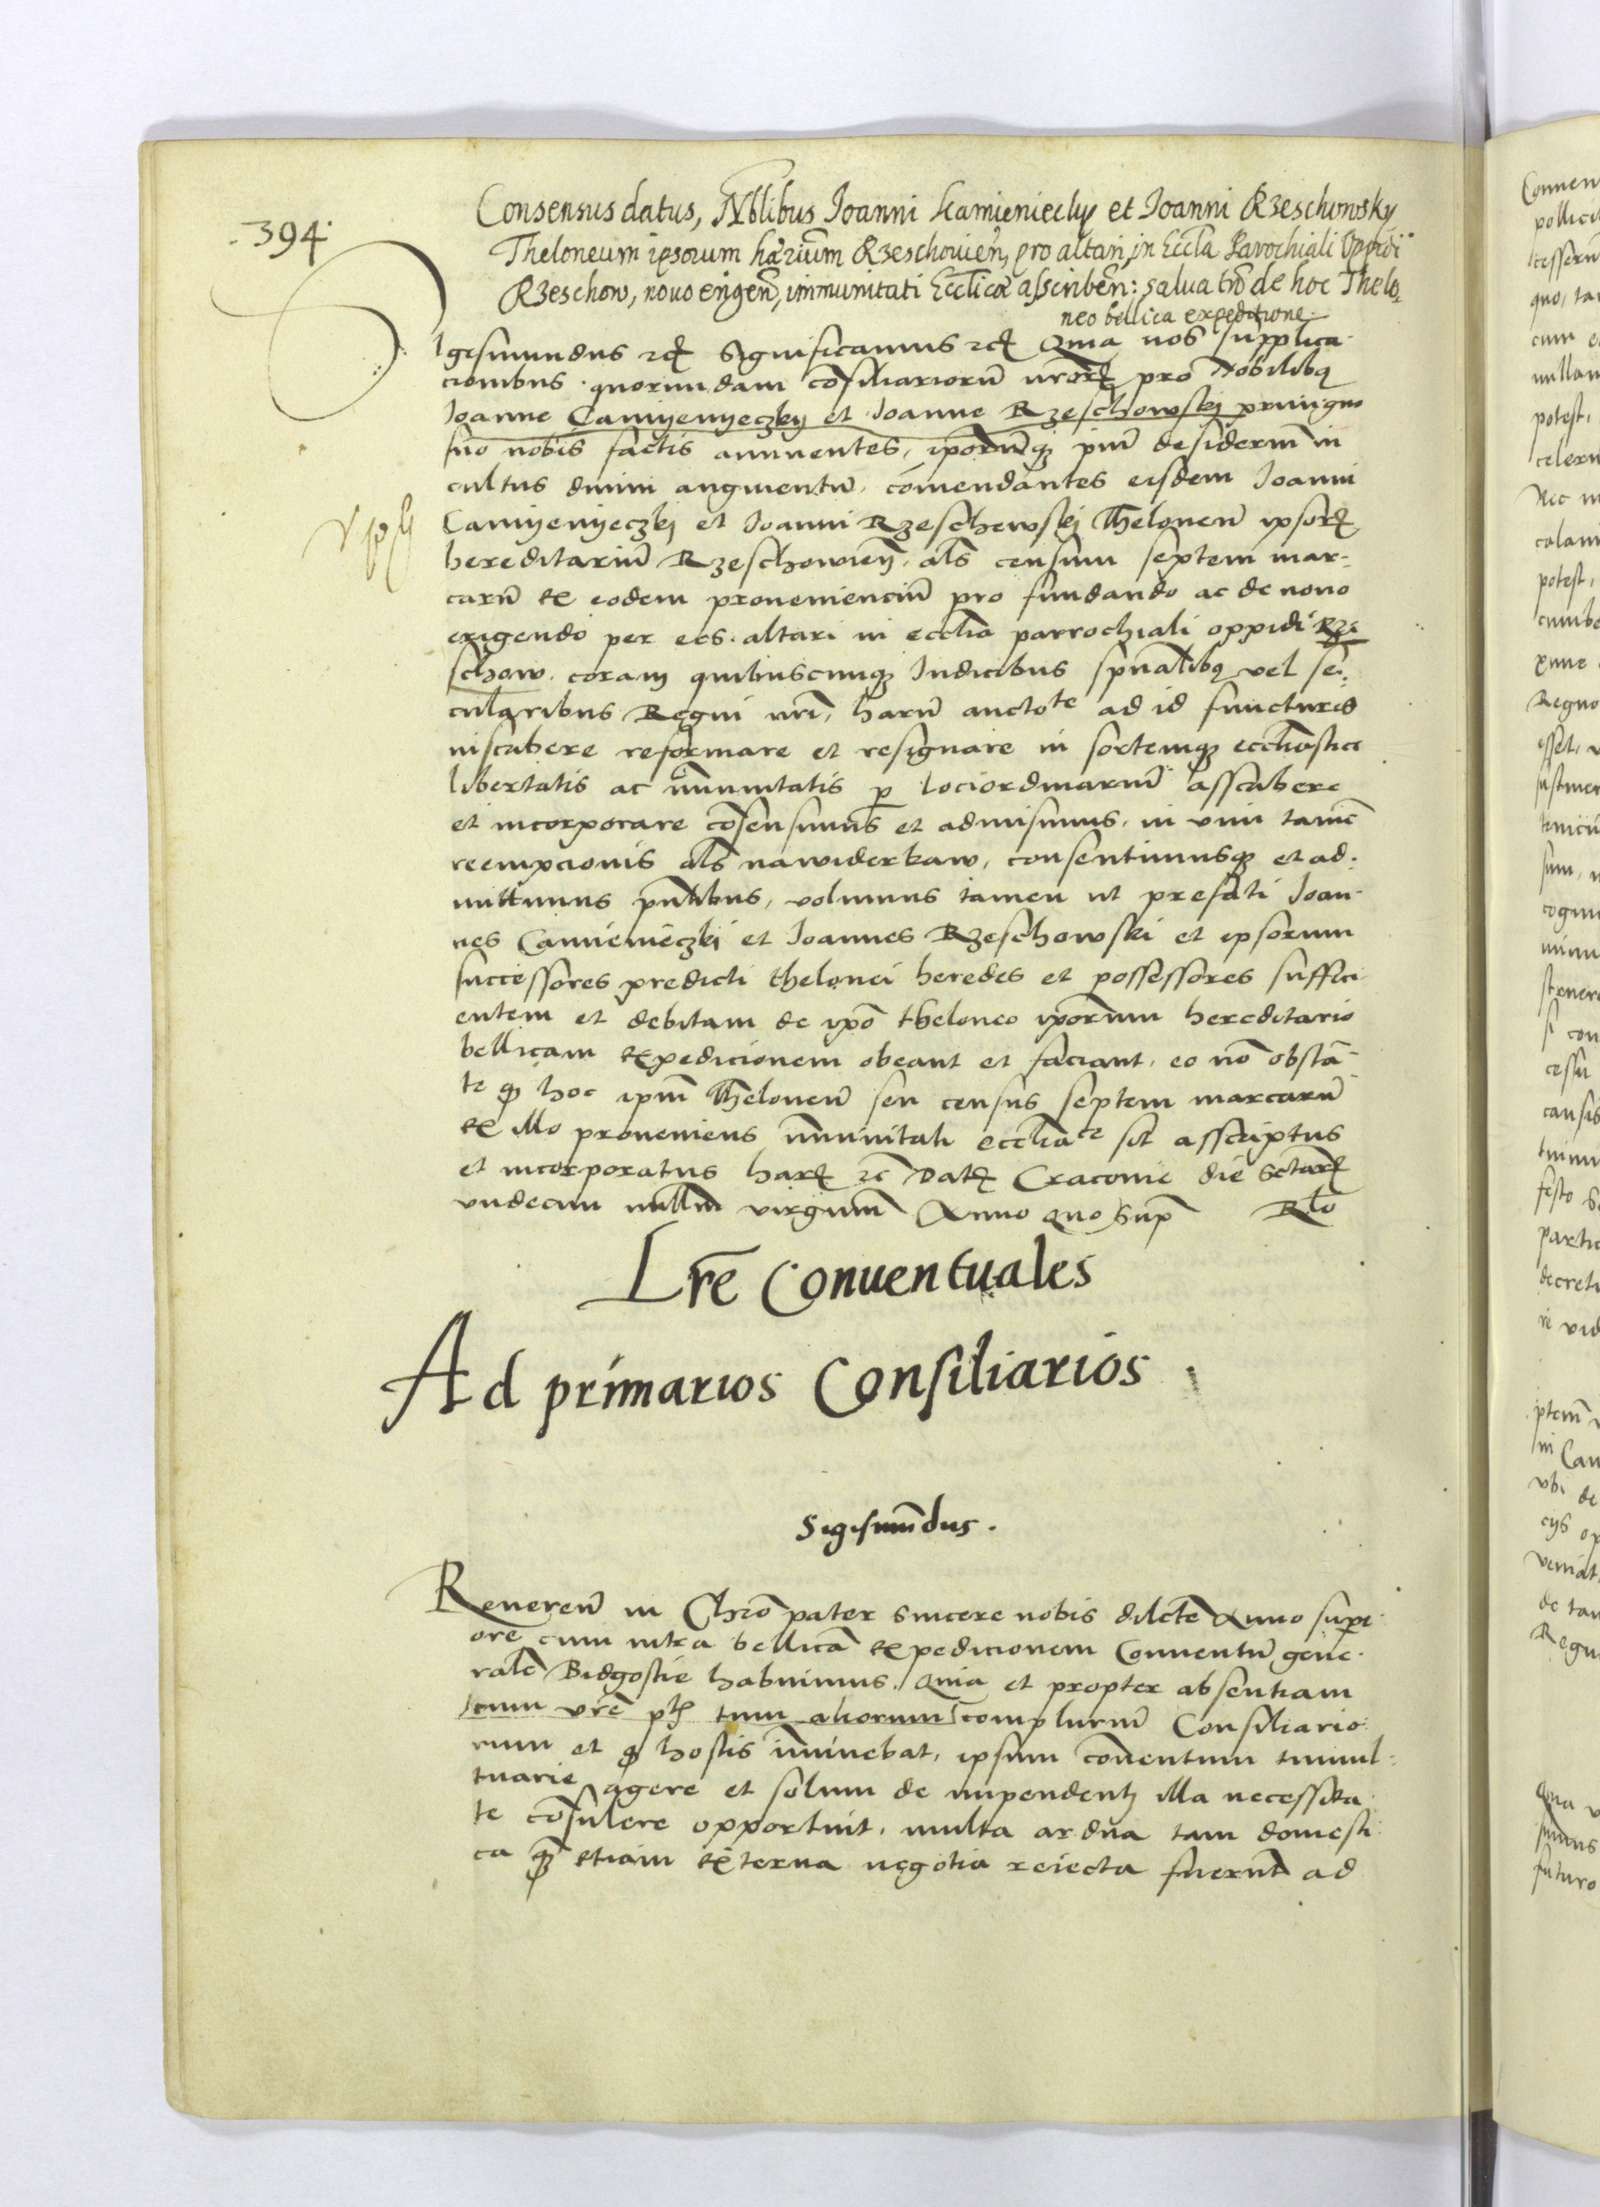 394.
Consensus datus, Nblibus Joanni Kamieniecky et Joanni Rzeschowsky
Theloneum ipsorum harium Rzeschovien, pro altari in Eccla Parochiali Oppidi
Rzeschow, novo erigen, immunitati Ecclicae asscriben: salva tn de hoc Thelo,
neo bellica expeditione.
Sigismundus etc Significamus etc Quia nos supplica-
cionibus quorundam consiliariorum nrorum pro Nobilibus
Joanne Camyenyeczky et Joanne Rzeschowskj privigno
suo nobis factis annuentes, ipsorumque pium desiderium in
cultus divini augmentum, comendantes eisdem Joanni
Camyenyeczkj et Joanni Rzeschowskj Theloneum ipsorum
hereditarium Rzeschowien, als censum septem mar-
carum ex eodem proveniencium pro fundando ac de novo
erigendo per eos altari in ecclia parrochiali oppidi Rze
schow, coram quibuscunque Iudicibus spualibus vel se-
cularibus Regni nri, harum auctote ad id functuris
inscribere reformare et resignare in sortemque eccliastice
libertatis ac immunitatis per lociordinarium asscribere
et incorporare consensimus et admisimus, in vim tamen
reempcionis als nawiderkaw, consentimusque et ad-
mittimus pntibus, volumus tamen ut prefati Joan-
nes Camienieczki et Joannes Rzeschowski et ipsorum
successores predicti thelonei heredes et possessores suffici
entem et debitam de ipso theloneo ipsorum hereditario
bellicam expedicionem obeant et faciant, eo non obstan-
te quod hoc ipsum Theloneum seu census septem marcarum
ex illo proveniens immunitati eccliace sit asscriptus
et incorporatus harum etc Datum Cracovie die Sctarum
undecim millium virginum Anno quo supra Rlo
Lre Conventuales
Ad primarios Consiliarios
Sigismundus.
Reveren in Christo pater sincere nobis dilecte Anno superi-
ore cum intra bellicam expedicionem Conventum gene-
ralem Bidgostie habuimus, Quia et propter absentiam
tum vre ptis tum aliorum complurium Consiliario-
rum et quod hostis imminebat, ipsum conventum tumul-
tuarie agere et solum de impendenti illa necessita-
te consulere opportuit, multa ardua tam domesti
ca quam etiam externa negotia reiecta fuerunt ad